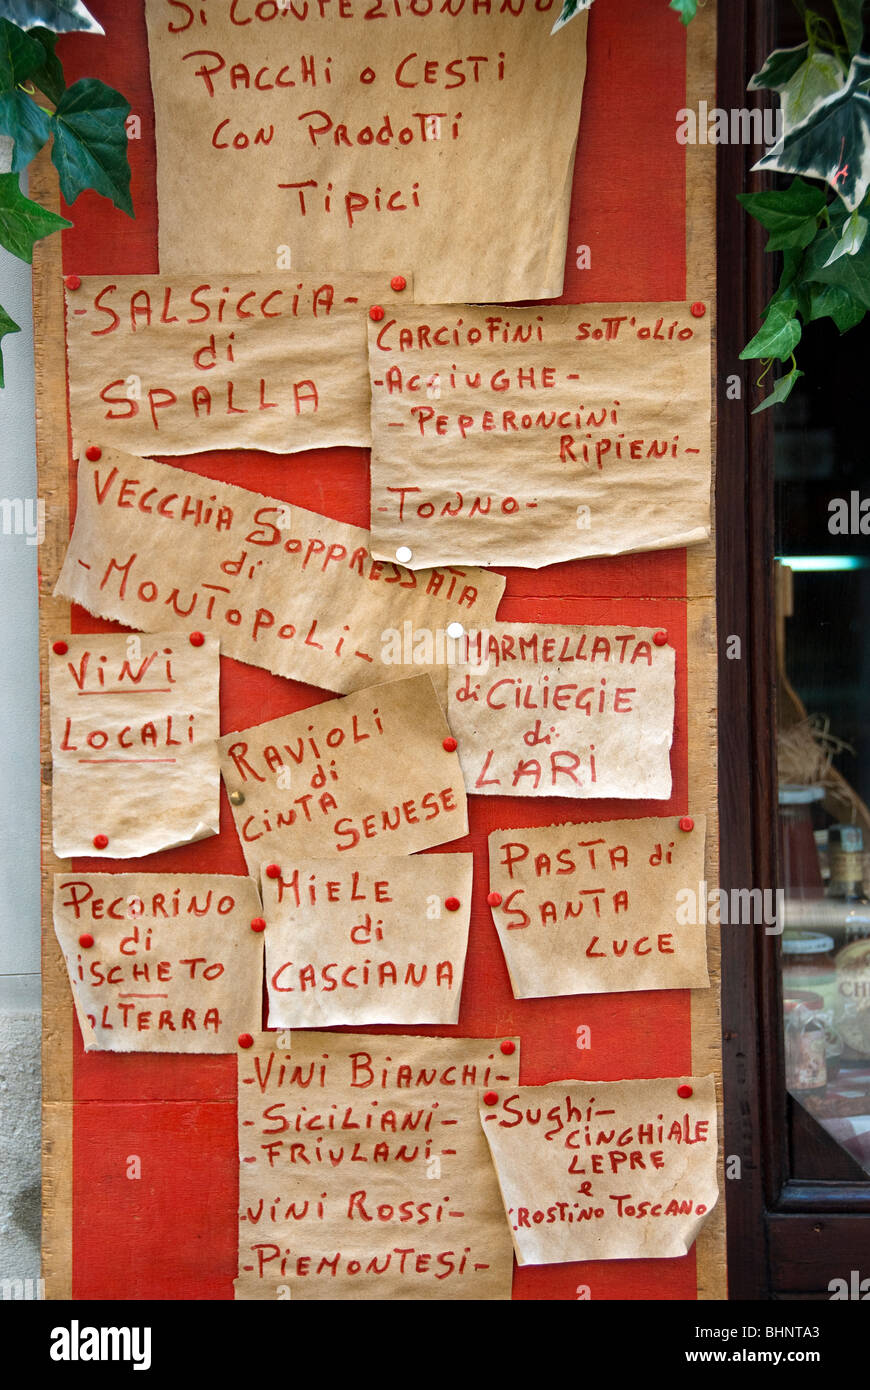 Si CONFEZIONANO
PACCHi o CESTi
CON PRODOTTi
TIPICI
-SALSICCIA-
di
SPALLA
CARCIOFINI SOTT'OLIO
-ACCIUGHE-
-PEPERONCINI
RIPIENI-
-TONNO-
VECCHIA SOPPRESSATA
di
-MONTOPOLI-
VINI
LOCALI
MARMELLATA
di CILIEGIE
di
LARI
RAVIOLI
di
CINTA
SENESE
PECORINO
di
ISCHETO
OLTERRA
MIELE
di
CASCIANA
PASTA di
SANTA
LUCE
-VINI BIANCHI-
-SICILIANI-
-FRIULANI-
-VINI ROSSI-
-PIEMONTESI-
-Sughi-
CINGHIALE
LEPRE
e
CROSTINO TOSCANO
CH
alamy
Image ID: BHNTA3
www.alamy.com